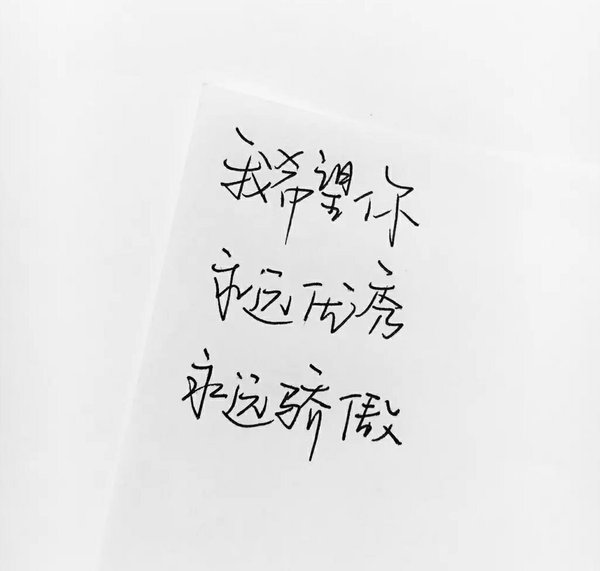 我希望你
永远优秀
永远骄傲